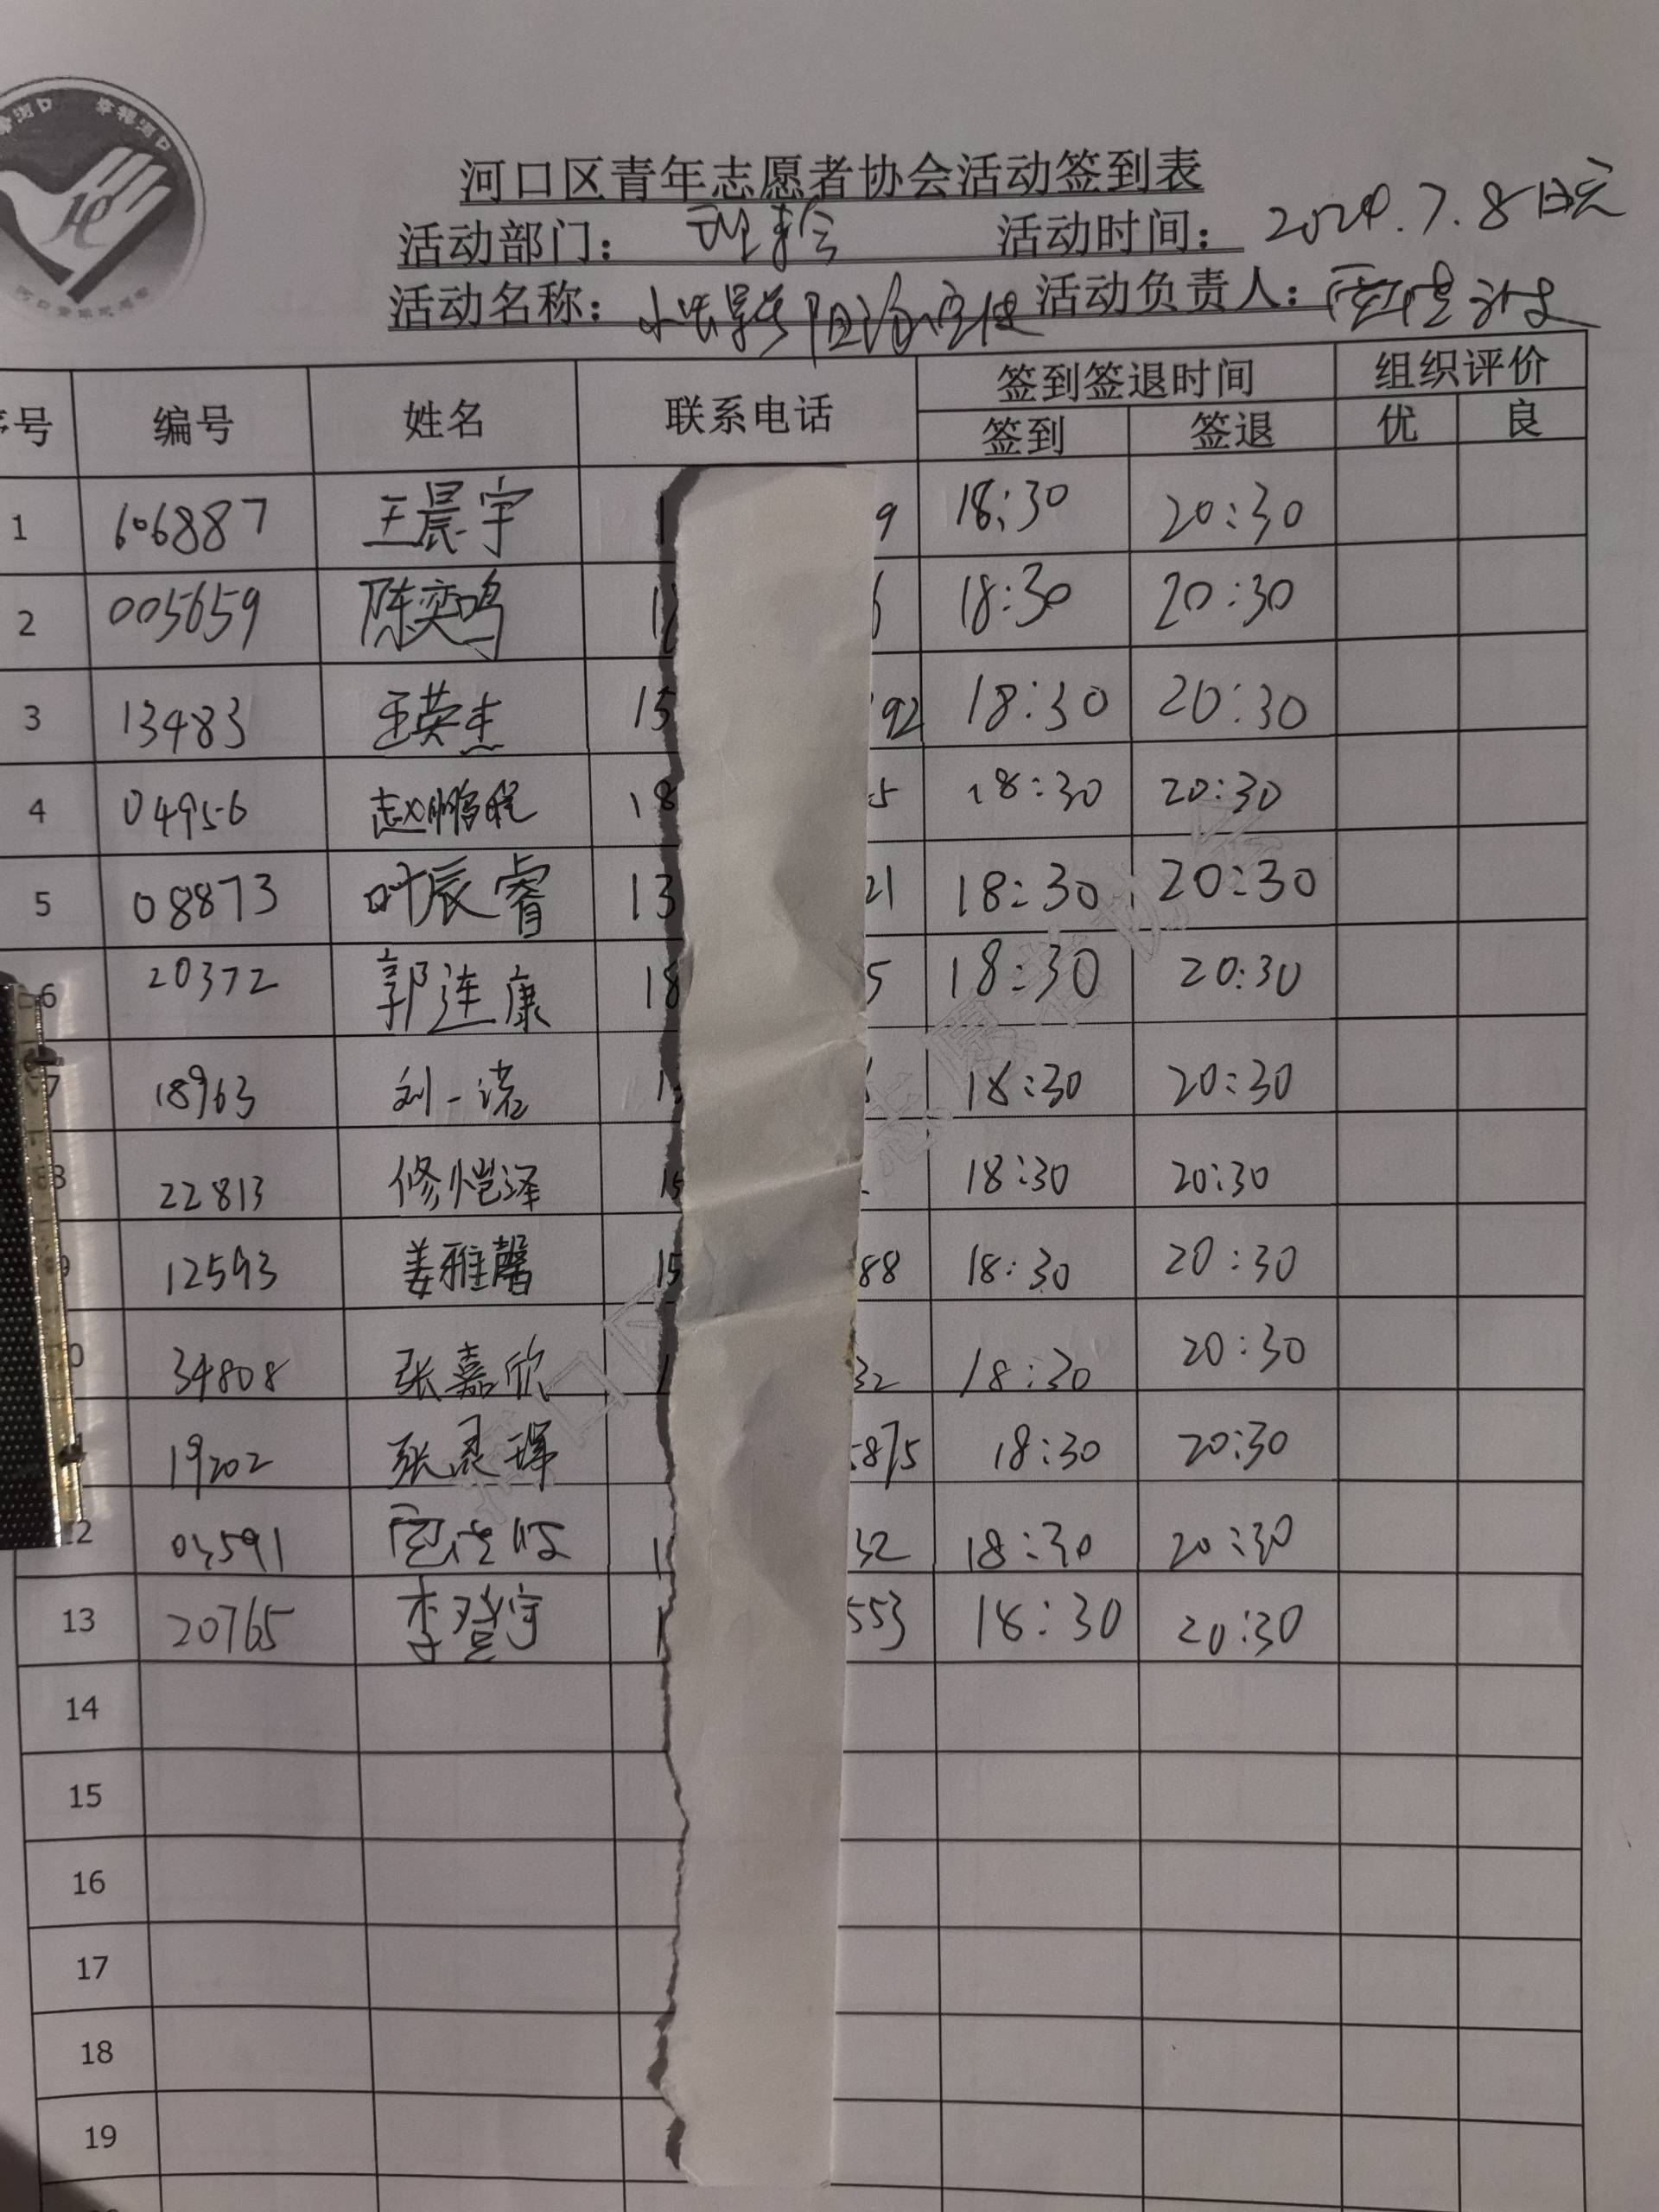 幸福河口
河口区青年志愿者协会活动签到表
活动部门: 理事会 活动时间: 2024.7.8日晚
活动名称: 活动负责人:
序号 编号 姓名 联系电话 签到签退时间 组织评价
签到 签退 优 良
1 606887 王晨宇 1 9 18:30 20:30
2 005659 陈奕鸣 1 6 18:30 20:30
3 13483 王荣杰 15 92 18:30 20:30
4 04956 赵鹏程 18 5 18:30 20:30
5 08873 叶辰睿 13 21 18:30 20:30
6 20372 郭连康 18 5 18:30 20:30
7 18963 刘一诺 1 18:30 20:30
8 22813 修恺泽 15 18:30 20:30
9 12593 姜雅馨 15 88 18:30 20:30
10 34808 张嘉欣 1 32 18:30 20:30
19202 张 5875 18:30 20:30
12 03591 1 32 18:30 20:30
13 20765 李登宇 1 553 18:30 20:30
14
15
16
17
18
19